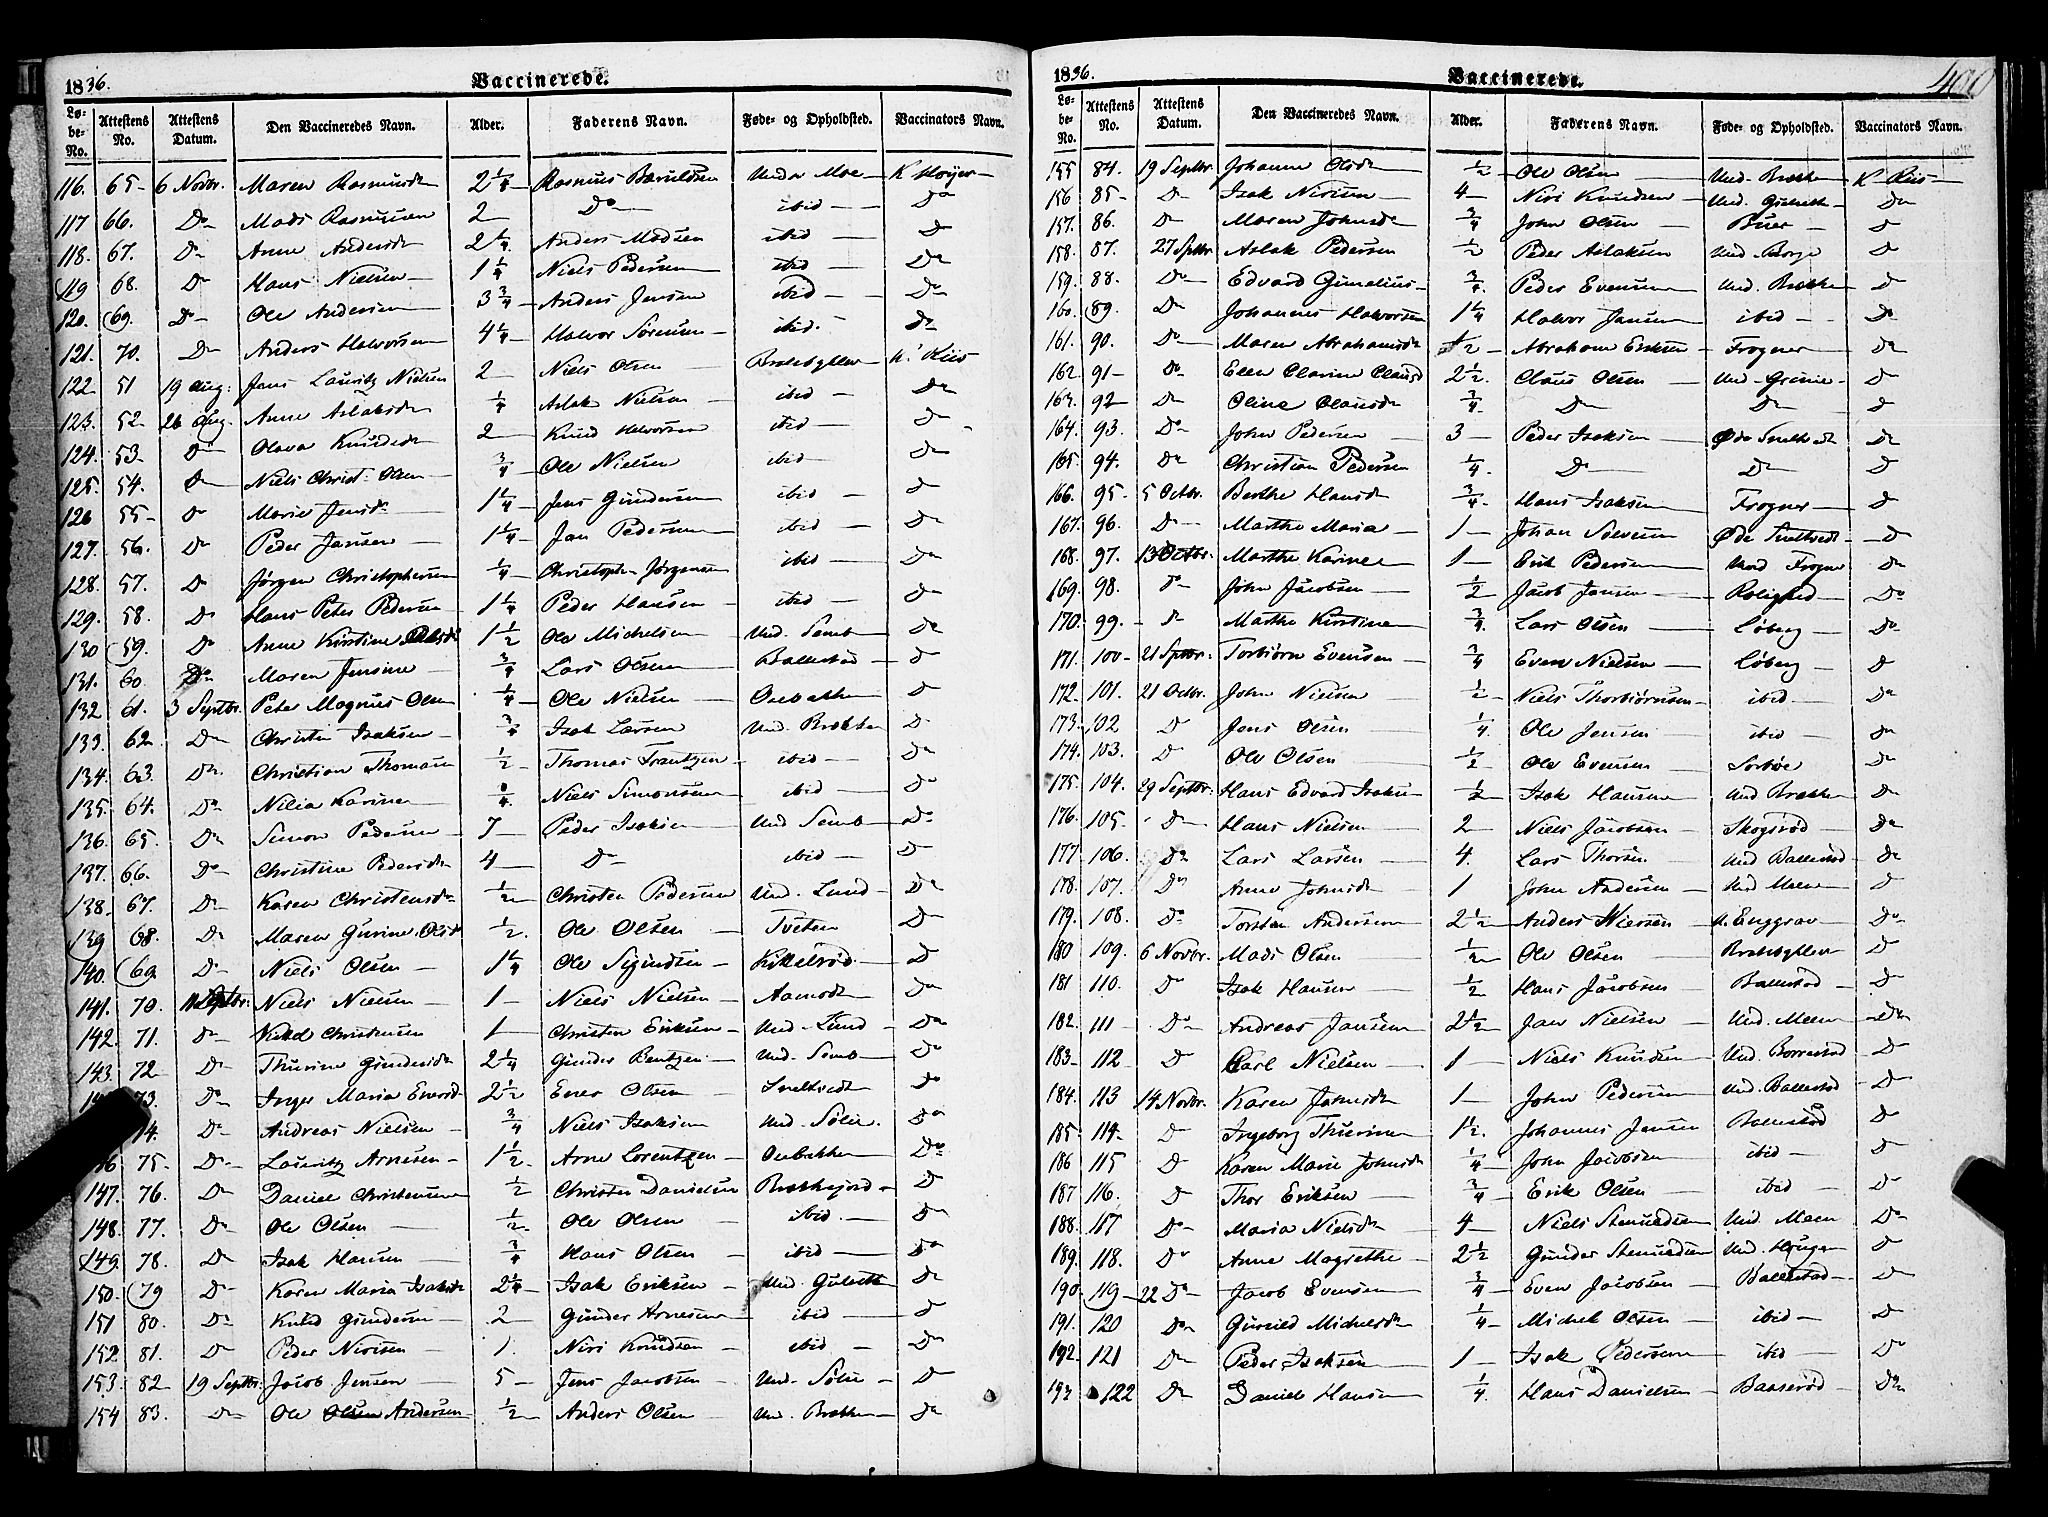 1836.
Vaccinerede.
Lø-be-No. Attestens No. Attestens Datum. Den Vaccineredes Navn. Alder. Faderens Navn. Føde- og Opholdsted. Vaccinators Navn.
116. 65 6 Novbr. Maren Rasmusdr 2 1/4 Rasmus Under Moe K Høyer
117 66. Do Mads Rasmusen 2 Do ibid Do
118. 67. Do Anne Andersdr 2 1/4 Anders Madsen ibid Do
119 68. Do Hans Nielsen 1 1/4 Niels Pedersen ibid Do
120. 69. Do Ole Andersen 3 3/4 Anders Jensen ibid Do
121. 70. Do Anders Halvorsen 4 1/4 Halvor Sørensen ibid. Do
122 51 19 Aug: Jens Lauritz Nielsen 2 Niels Olsen K. Riis
123. 52 26 Aug. Anne Aslaksdr 1/4 Aslak Nielsen ibid Do
124. 53 Do Olava Knudsdr 2 Knud Halvorsen ibid Do
125. 54. Do Niels Christ: Olsen 3/4 Ole Nielsen ibid Do
126 55 Do Marie Jensdr 1 1/4 Jens Gundersen ibid Do
127. 56. Do Peder Jansen 1 1/4 Jan Pedersen ibid Do
128. 57. Do Jørgen Christophersen 1/4 Christoph. Jørgensen ibid Do
129. 58. Do Hans Peter Pedersen 1 1/4 Peder Hansen ibid Do
130 59. Do Anne Kirstine Olsdr 1 1/2 Ole Michelsen Und. Semb Do
131. 60 Do Maren Jensine 3/4 Lars Olsen Ballestad Do
132 61. 3 Septbr. Peter Magnus Olsen 1/4 Ole Nielsen Do
133. 62 Do Christen Isaksen 3/4 Isak Larsen Und. Brække Do
134. 63. Do Christian Thomasen 1/2 Thomas Frantzen ibid Do
135. 64. Do Nilia Karine Niels Simonsen ibid Do
136. 65. Do Simon Pedersen 7 Peder Isaksen Und Semb Do
137. 66. Do Christine Pedersdr 4 Do ibid Do
138. 67. Do Karen Christensdr 1/2 Christen Pedersen Und. Lund Do
139 68. Do Maren Gurine Olsdr 1/2. Ole Olsen Tveten Do
140. 69 Do Niels Olsen 1 1/4 Ole Kikkelrød Do
141. 70. Septbr. Niels Nielsen 1 Niels Nielsen Aamodt Do
142. 71. Do Christensen 1 Christen Eriksen Und. Lund Do
143. 72 Do Thurine Gundersdr 2 1/4 Gunder Bentzen Und. Semb Do
73. Do Inger Maria Evensd 2 1/2 Even Olsen Sneltvedt Do
Do Andreas Nielsen 3/4 Niels Isaksen Und. Solie. Do
75. Do Lauritz Arnesen 1 1/2. Arne Lorentzen Do
147. 76. Do Daniel Christensen 1/2 Christen Danielsen Brækkejord Do
148. 77. Do Ole Olsen 1/2 Ole Olsen ibid. Do
149 78. Do Isak Hansen 3/4 Hans Olsen ibid Do
150. 79 Do Karen Maria Isaksdr 2 1/4 Isak Eriksen Und. Gulseth Do
151 80. Do Knud Gundersen 2 Gunder Arnesen ibid Do
152 81. Do Peder Nirisen 1. Niri Knudsen ibid Do
153. 82 19 Septbr. Jacob Jensen 5 Jens Jacobsen Und. Solie Do
154 83. Do Ole Olsen Andersen 1/2 Anders Olsen Und. Brække Do
1836.
Vaccinerede.
400
Lø-be-No. Attestens No. Attestens Datum. Den Vaccineredes Navn. Alder. Faderens Navn. Føde- og Opholdsted. Vaccinators Navn.
155 84. 19 Septbr Johanne Olsdr 1/2 Ole Olsen Und. Brække K Riis
156 85 Do Isak Nirisen 4 Niri Knudsen Und. Gulseth Do
157. 86. Do Maren Johnsdr 3/4 John Olsen Buer Do
158. 87. 27 Septbr Aslak Pedersen 1/2 Peder Aslaksen Und. Borge Do
159. 88. Do Edvard Gunelius 3/4. Peder Evensen Und. Brække Do
160. 89. Do Johannes Halvorsen 1 1/4 Halvor Jansen ibid Do
161. 90. Do Maren Abrahamsdr 1/2 Abraham Eriksen Frogner Do
162. 91 Do Ellen Clarine Clausd 2 1/2. Claus Olsen Und. Do
163. 92 Do Oline Clausdr 3/4. Do Do Do
164. 93. Do John Pedersen 3 Peder Isaksen Øde Sneltvedt Do
165. 94. Do Christian Pedersen 1/4. Do Do Do
166. 95 5 Octbr. Berthe Hansdr 3/4. Hans Isaksen Frogner Do
167. 96. Do Marthe Maria 1 Johan Øde Sneltvedt Do
168. 97. 13 Octbr. Marthe Karine 1 Erik Pedersen Und Frogner Do
169. 98. Do John Jacobsen 1/2 Jacob Jansen Rolighed Do
170. 99. Do Marthe Kirstine 3/4. Lars Olsen Løberg Do
171. 100 21 Septbr: Torbiørn Evensen 3/4 Even Nielsen Løberg Do
172. 101. 21 Octbr. John Nielsen 1/2 Niels Thorbiørnsen ibid. Do
173. 102 Do Jens Olsen 1/4. Ole Jensen ibid Do
174. 103. Do Ole Olsen 1/2 Ole Evensen Sortbøe Do
175. 104. 29 Septbr: Hans Edvard Isaksen 1/2 Isak Hansen Und Brække Do
176. 105. Do Hans Nielsen 2 Niels Jacobsen Skogsrød Do
177 106. Do Lars Larsen 4. Lars Thorsen Und Ballestad Do
178. 107. Do Anne Johnsdr 1 John Andersen Und Moen Do
179. 108. Do Torsten Andersen 2 1/2 Anders U. Enggrav Do
180 109. 6 Novbr. Mads Olsen 1/2 Ole Olsen Do
181 110. Do Isak Hansen 1/2 Hans Jacobsen Ballestad Do
182. 111 Do Andreas Jansen 2 1/2 Jan Nielsen Und. Moen Do
183 112 Do Carl Nielsen 1 Niels Knudsen Und. Borrestad Do
184. 113 14 Novbr. Karen Johnsdr 1 John Pedersen Und. Ballestad Do
185. 114. Do Ingeborg Thurine 1 1/2. Johannes Jensen Ballestad Do
186 115 Do Karen Marie Johnsdr 1/4 John Jacobsen ibid Do
187 116. Do Thor Eriksen 3/4 Erik Olsen ibid Do
188. 117 Do Maria Nielsdr 4 Niels Und. Moen Do
189. 118. Do Anne Magrethe 2 1/2 Gunder Und. Do
190. 119 22 Do Jacob Evensen 3/4 Even Jacobsen Ballestad Do
191. 120 Do Gunild Michelsdr 1/4 Michel Olsen ibid Do
192. 121 Do Peder Isaksen 1 Isak Pedersen ibid Do
193 122 Do Daniel Hansen 1/4. Hans Danielsen Baaserød Do